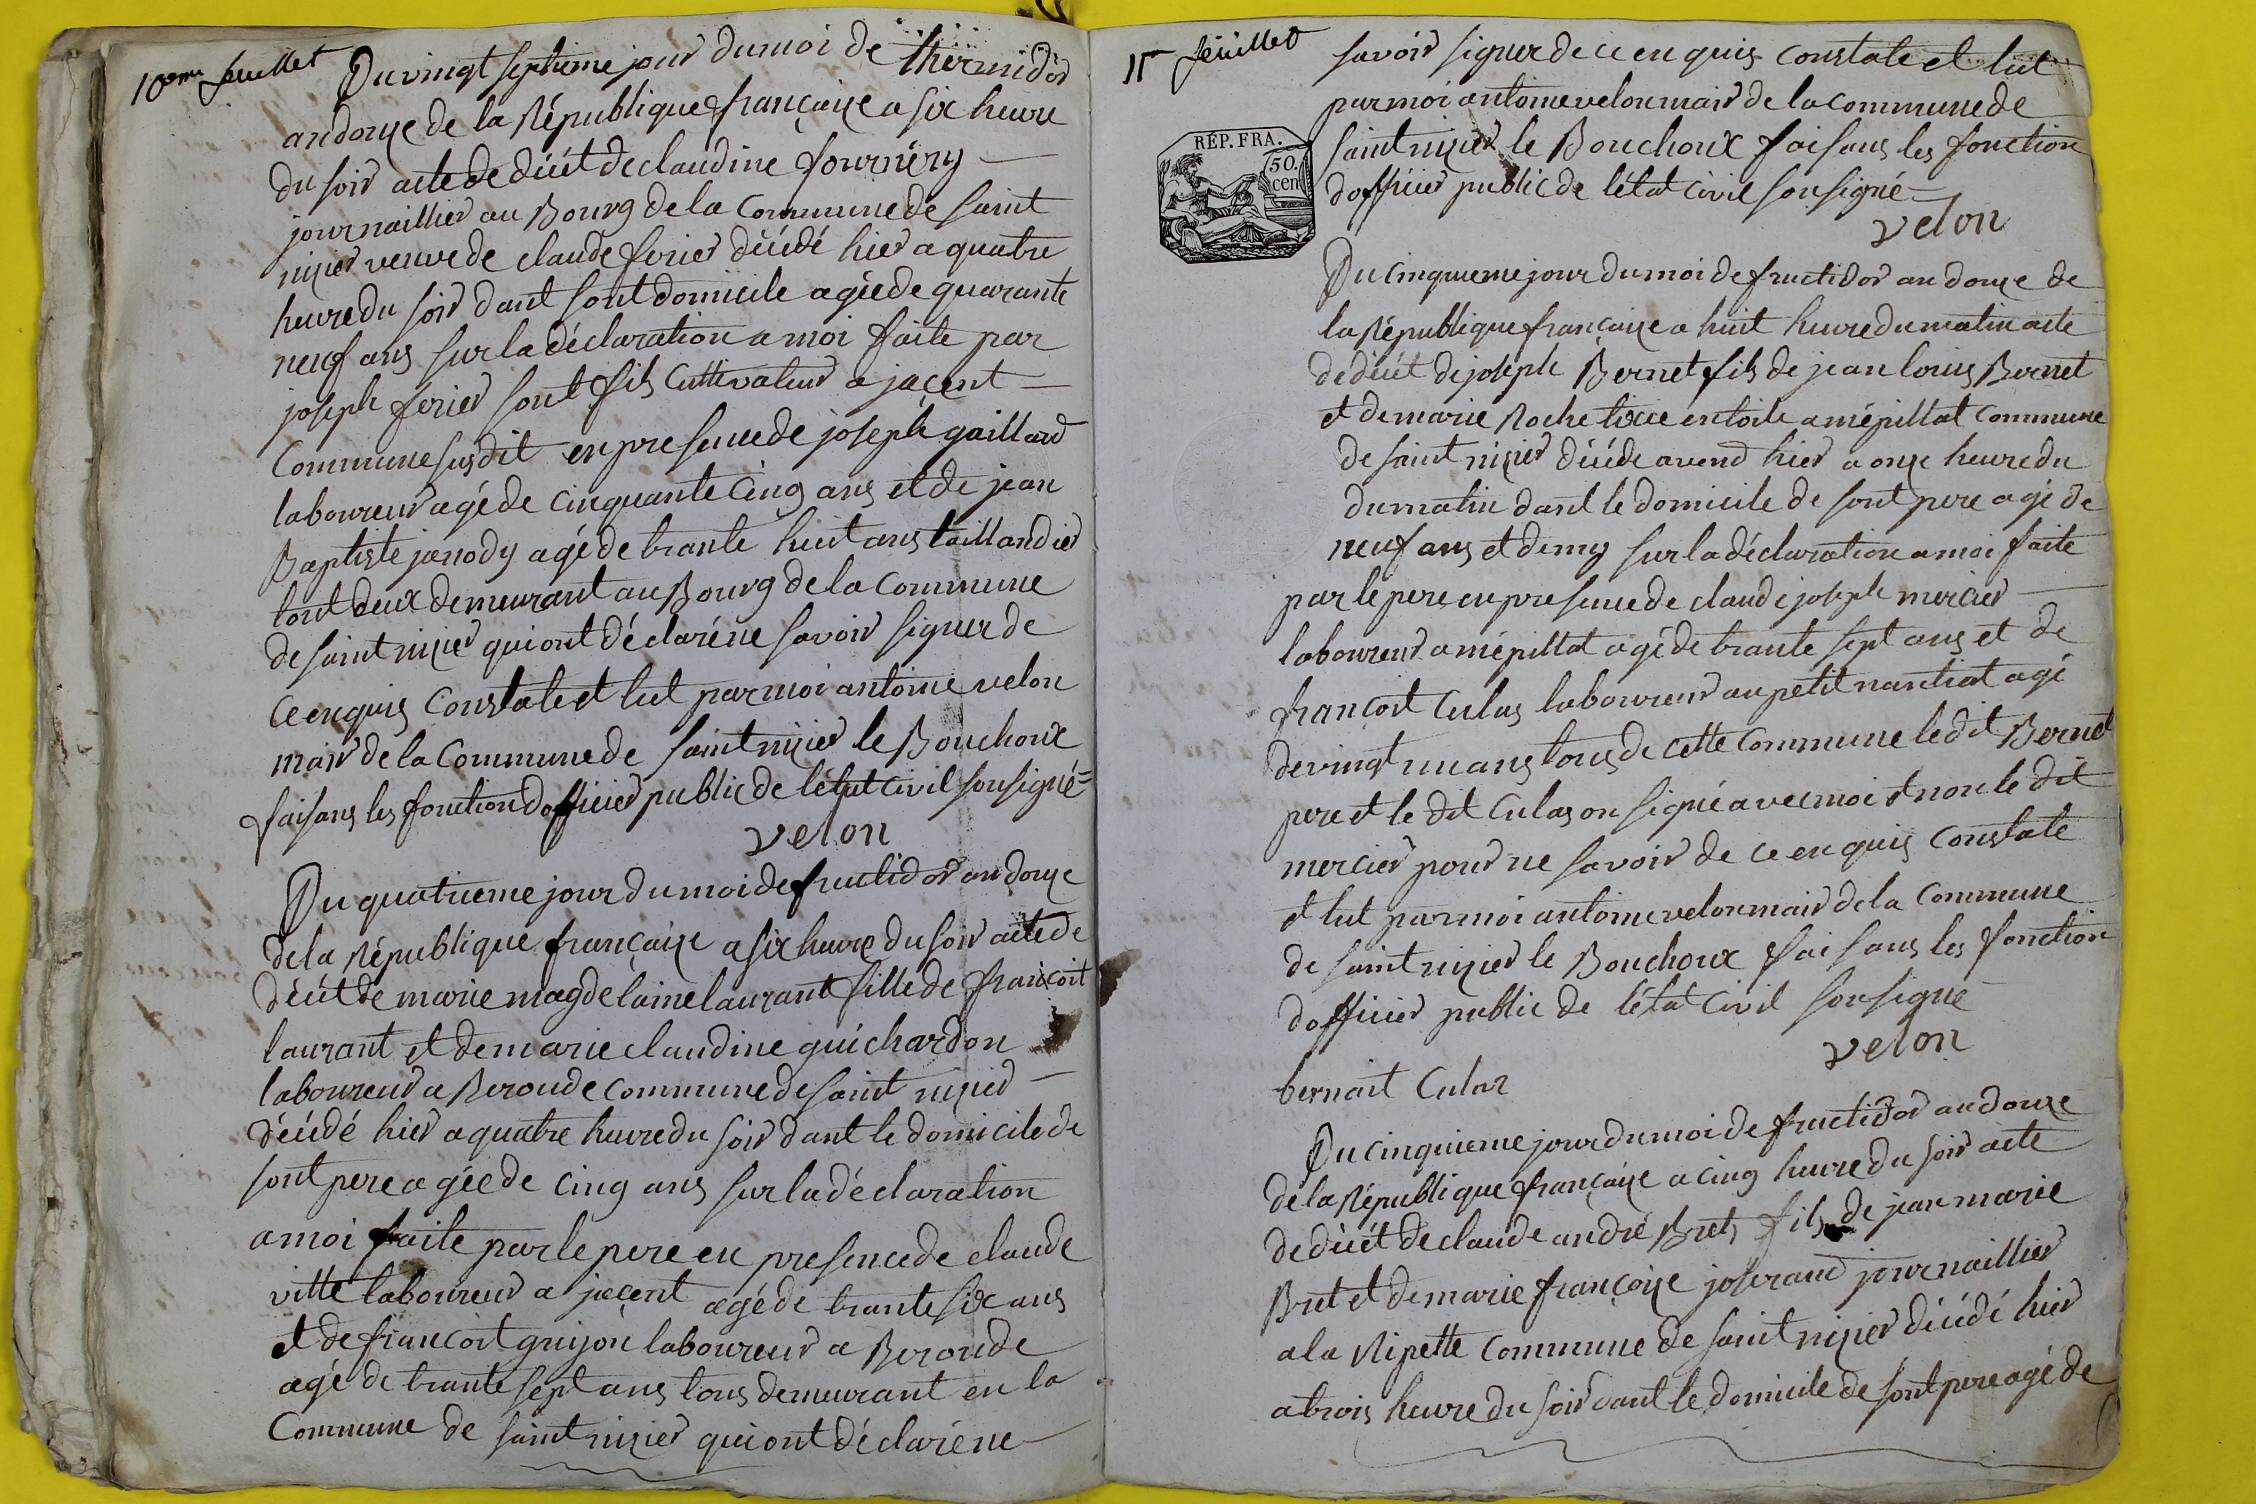 10eme feuillet
Du vingt septieme jour du moi de thermidor
an douze de la République françaize a six heure
du soir acte de décét de claudine fournéry
journaillier au Bourg de la Commune de saint
nizier veuve de claude ferier décédé hier a quatre
heure du soir dant sont domicile agée de quarante
neuf ans sur la déclaration a moi faite par
joseph ferier sont fils Cultivateur a jaçent
Commune susdit en presence de joseph gaillard
laboureur agé de cinquante Cinq ans et de jean
Baptiste janody agé de trante huit ans taillandier
tout deux demeurant au Bourg de la Commune
de saint nizier qui ont déclaré ne savoir signer de
ce enquis Constate et lut par moi antoine velon
mair de la Commune de saint nizier le Bouchoux
faisans les fonction dofficier public de létat civil sousigné
velon
Du quatrieme jour du moi de fructidor an douze
de la République françaize a six heure du soir acte de
décét de marie magdelaine laurant fille de françoit
laurant et de marie claudine guichardon
laboureur a Beroude commune de saint nizier
décédé hier a quatre heure du soir dant le domicile de
sont pere agée de cinq ans sur la déclaration
a moi faite par le pere en presence de claude
vitte laboureur a jaçent agé de trante six ans
et de françoit guijon laboureur a Beroude
agé de trante sept ans tous demeurant en la
Commune de saint nizier qui ont déclaré ne
11e feuillet
savoir signer de ce en quis constate et lut
par moi antoine velon mair de la commune de
saint nizier le Bouchoux faisans les fonction
dofficier public de létat civil sousigné
RÉP. FRA.
50.
cen
velon
Du cinquieme jour du moi de fructidor an douze de
la République françaize a huit heure du matin acte
de décét de joseph Bernet fils de jean louis Bernet
et de marie Roche tixie en toile a mépillat commune
de saint nizier décéde avend hier a onze heure du
du matin dant le domicile de sont pere agé de
neuf ans et demy sur la déclaration a moi faite
par le pere en presence de claude joseph mercier
laboureur a mépillat agé de trante sept ans et de
françoit Culas laboureur au petit nantiat agé
de vingt un ans tous de cette commune le dit Bernet
pere et le dit Culas on signé avec moi et non le dit
mercier pour ne savoir de ce en quis constate
et lut par moi antoine velon mair de la commune
de saint nizier le Bouchoux faisans les fonction
dofficier public de létat civil sousigne
velon
bernait Culas
Du cinquieme jour du moi de fructidor an douze
de la République françaize a cinq heure du soir acte
de décét de claude andré Bret fils de jean marie
Bret et de marie françoize joserand journaillier
a la Ripette commune de saint nizier décédé hier
a trois heure du soir dant le domicile de sont pere agé de